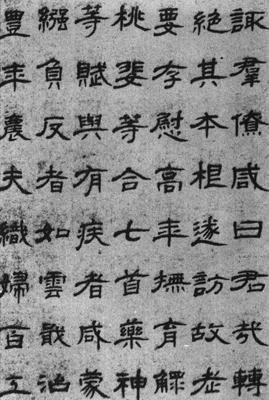 諏羣僚咸曰君哉轉
絕其本根遂訪故老
要存慰高年撫育鰥
桃斐等合七首藥神
等賦與有疾者咸蒙
繦負反者如雲戢治
豐年農夫織婦百工